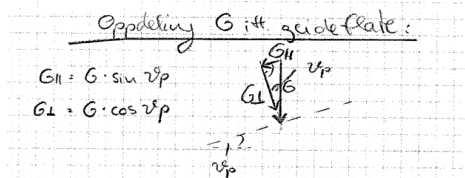 Oppdeling G ift. glideflate:
G॥ = G · sin vp
G⊥ = G · cos vp
G॥
vp
G⊥
G
vp